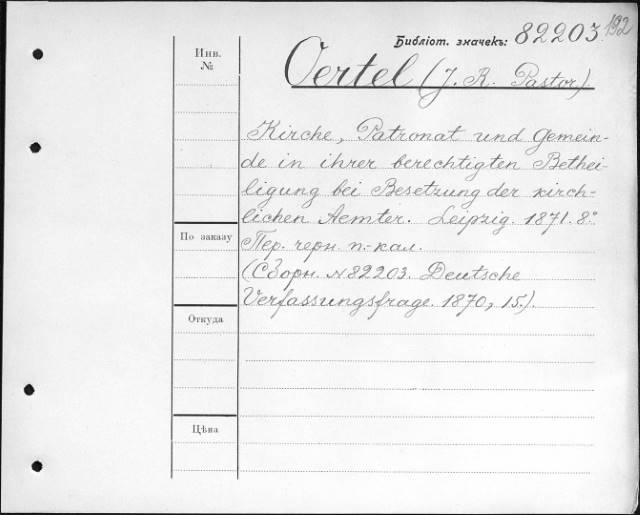 192
Библіот. значекъ: 82203.
Инв.
№
Oertel (J. R. Pastor).
Kirche, Patronat und Gemein-
de in ihrer berechtigten Bethei-
ligung bei Besetzung der kirch-
lichen Aemter. Leipzig. 1871. 8.°
По заказу
Пер. черн. п.-кал.
(Сборн. №82203. Deutsche
Verfassungsfrage. 1870, 15.).
Откуда
Цѣна